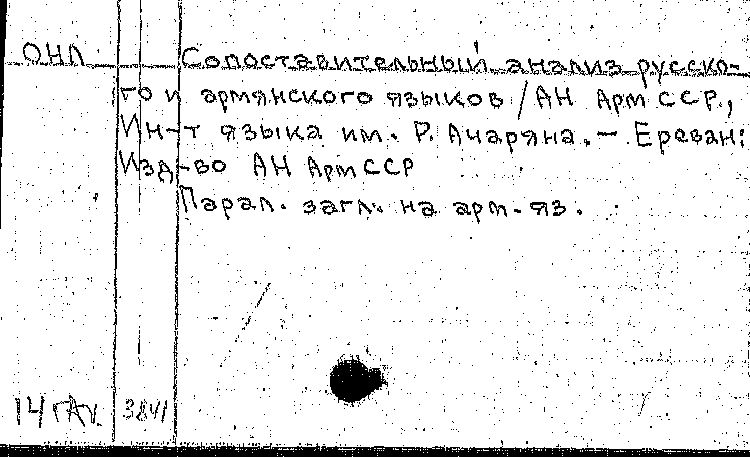 ОНЛ Сопоставительный анализ русско-
го и армянского языков / АН Арм ССР,
Ин-т языка им. Р. Ачаряна. — Ереван:
Изд-во АН Арм ССР
Парал. загл. на арм. яз.
14 3841